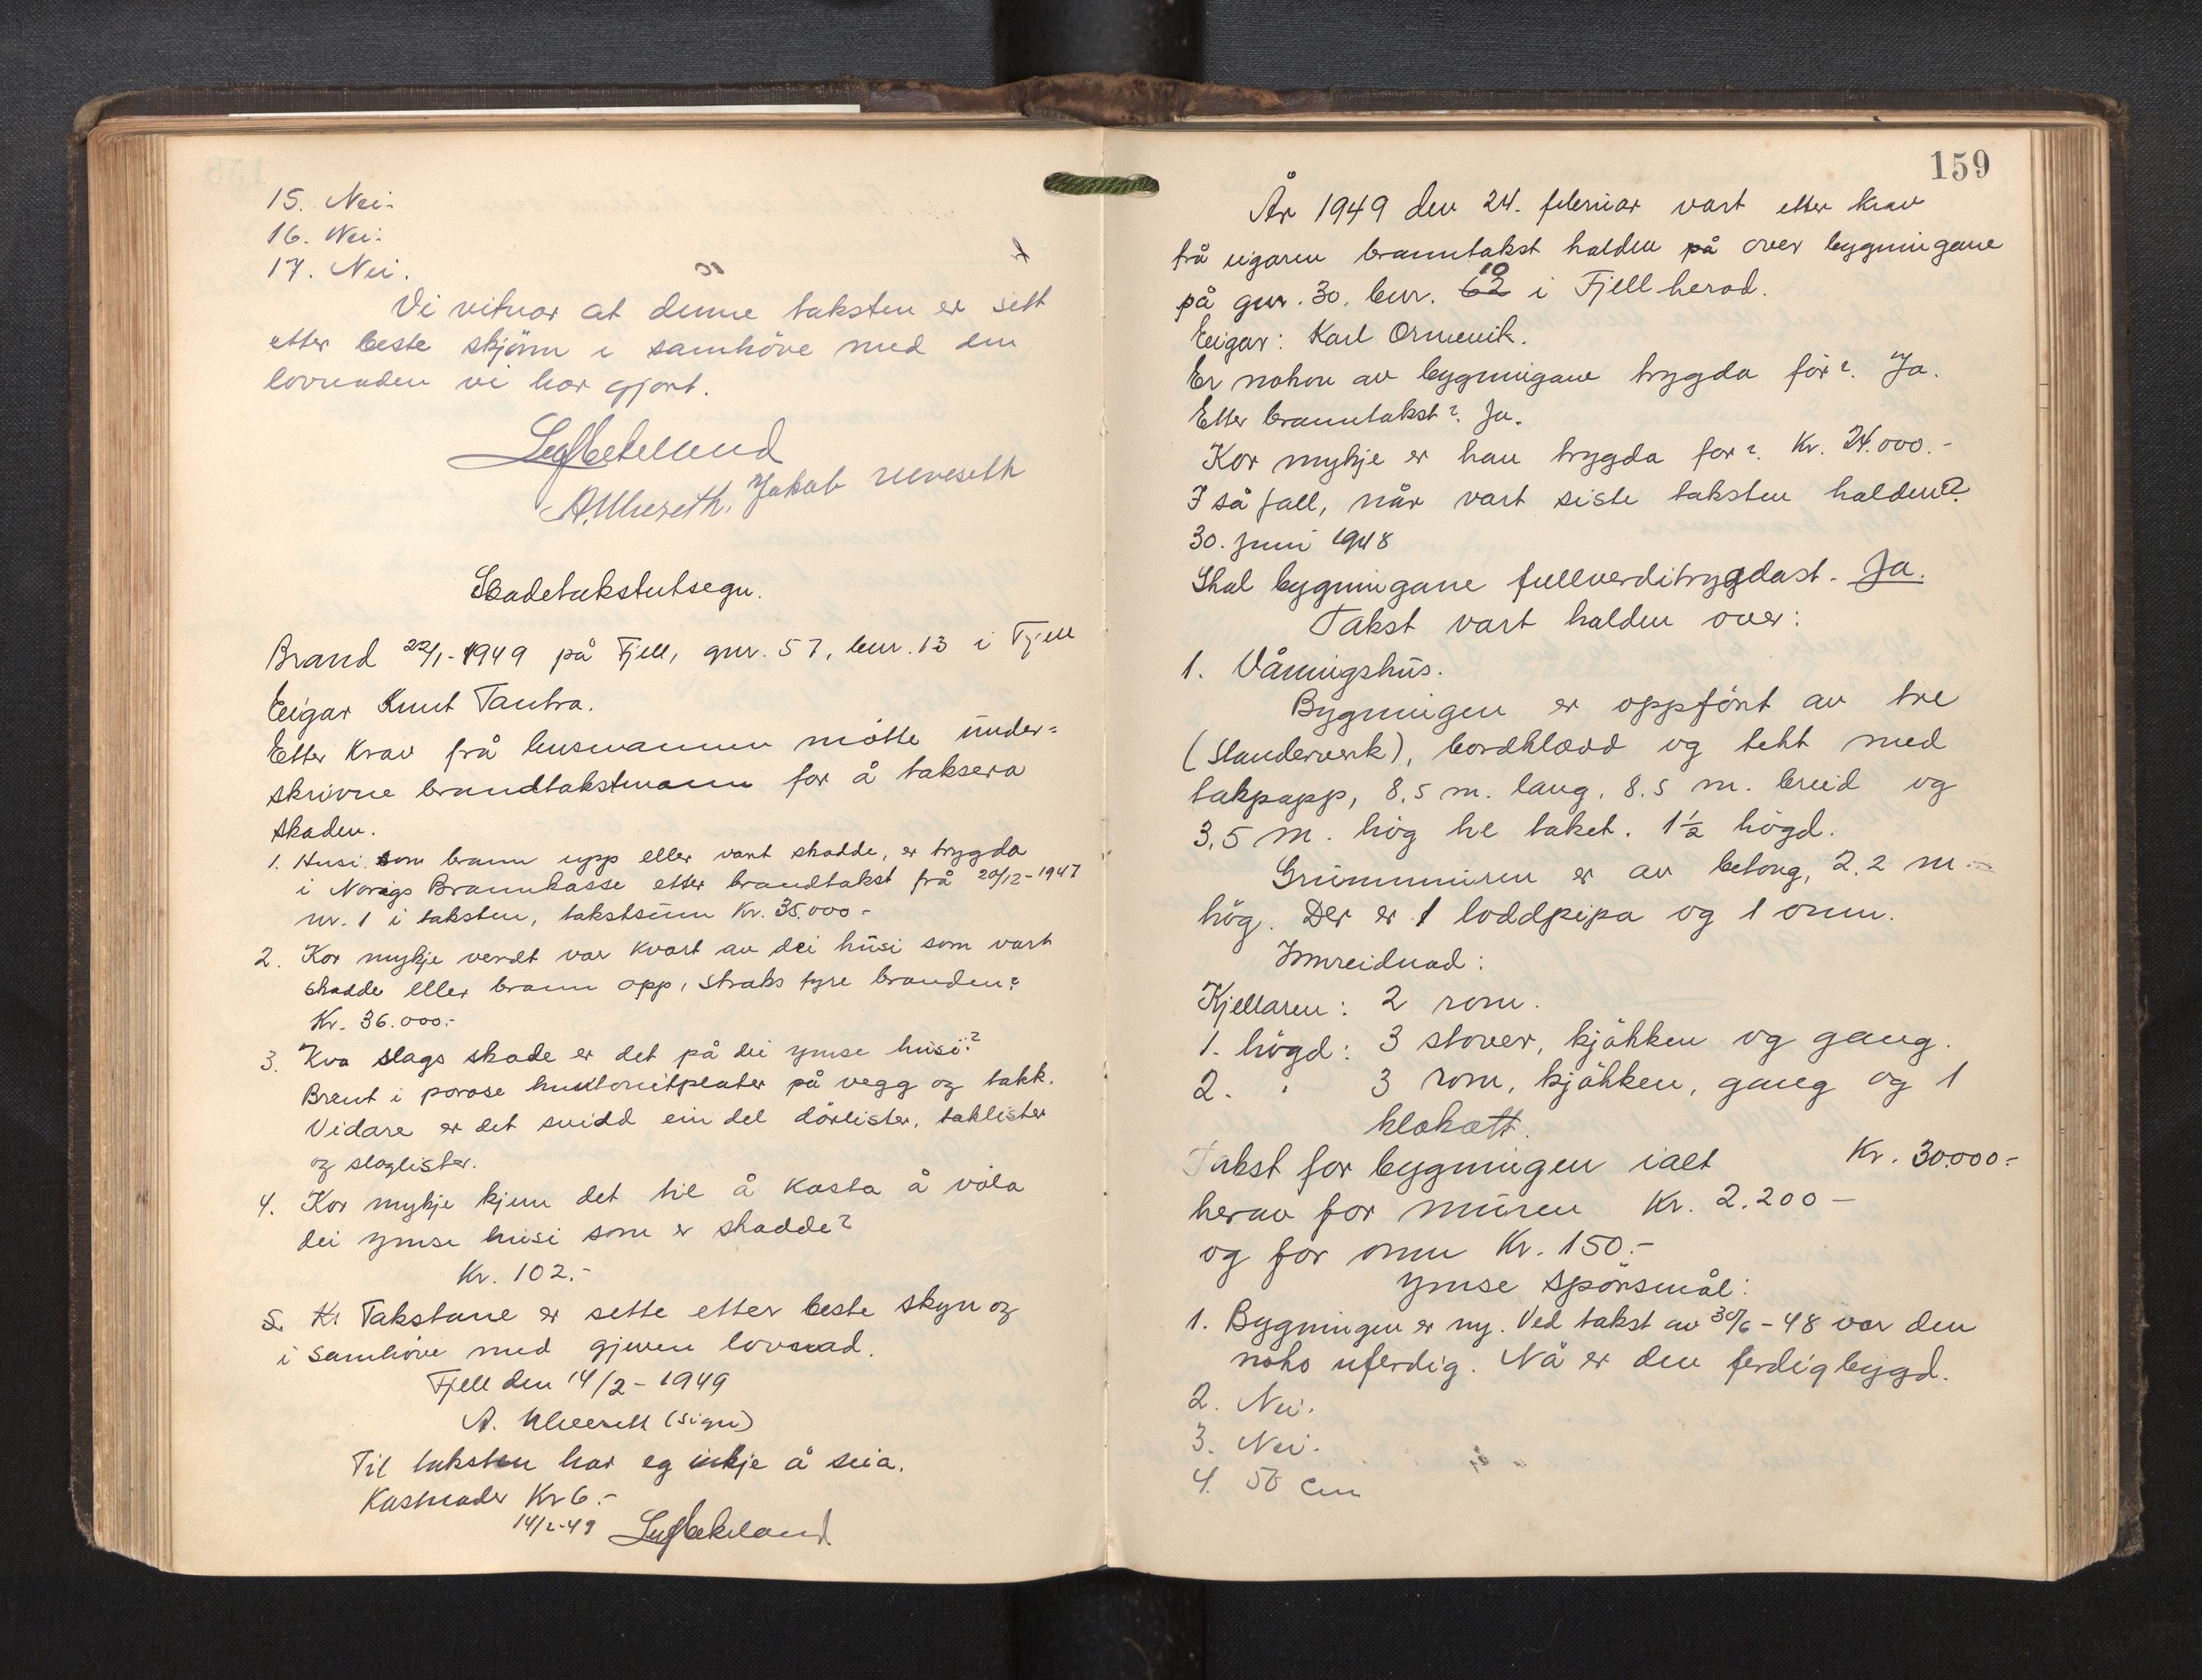 15. Nei.
16. Nei.
17. Nei.
Vi vitnar at denne taksten er sett
etter beste skjönn i samhöve med den
lovnaden vi har gjort.
A. Ulveseth. Jakob Ulveseth
Skadetakstutsegn.
Brand 22/1-1949 på Fjell, gnr. 57, bnr. 13 i Fjell
Eigar Knut Tantra.
Etter Krav frå husmannen mötte under=
skrivne brandtakstmann for å taksera
skaden.
1. Husi som brann upp eller vart skadde, er trygda
i Noregs Brannkasse etter brandtakst frå 20/12-1947
nr. 1 i taksten, takstsum Kr. 35.000-
2. Kor mykje verdt var kvart av dei husi som vart
skadde eller brann opp, straks fyre branden?
Kr. 36.000.-
3. Kva slags skade er det på dei ymse husi?
Brent i porose huntonitplater på vegg og takk.
Vidare er det svidd ein del dörlister, taklister
og slaglister.
4. Kor mykje kjem det til å kosta å völa
dei ymse husi som er skadde?
Kr. 102.-
5. Kr Takstane er sette etter beste skyn og
i samhöve med gjeven lovnad.
Fjell den 14/2-1949
A. Ulveseth (sign)
Til taksten har eg inkje å seia.
Kostnader Kr 6.-
14/2-49
159
År 1949 den 24. februar vart etter krav
frå eigaren branntakst halden på over bygningane
på gnr. 30. bnr. 62 10 i Fjell herad.
Eigar: Karl Ormevik.
Er nokon av bygningane trygda för? Ja.
Etter branntakst? Ja.
Kor mykje er han trygda for? Kr. 24.000.-
I så fall, når vart siste taksten halden?
30. juni 1948
Skal bygningane fullverditrygdast. Ja.
Takst vart halden over:
1. Våningshus.
Bygningen er oppfört av tre
(Standerverk), bordklædd og tekt med
takpapp, 8.5 m. lang, 8.5 m. breid og
3,5 m. hög til taket. 1½ högd.
Grunnmuren er av betong, 2.2 m.-
hög. Der er 1 loddpipa og 1 omn.
Innreidnad:
Kjellaren: 2 rom.
1. högd: 3 stover, kjökken og gang.
2. " 3 rom, kjökken, gang og 1
klokott.
Takst for bygningen ialt Kr. 30.000.-
herav for muren Kr. 2.200-
og for omn Kr. 150.-
Ymse spörsmål:
1. Bygningen er ny. Ved takst av 30/6-48 var den
noko uferdig. Nå er den ferdigbygd.
2. Nei.
3. Nei.
4. 50 cm